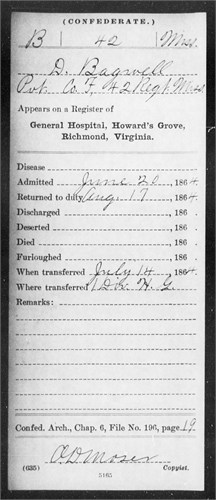 (CONFEDERATE.)
B 42 Miss.
D. Bagwell
Pvt. Co. F, 42 Regt. Miss.
Appears on a Register of
General Hospital, Howard's Grove,
Richmond, Virginia.
Disease
Admitted June 20, 1864.
Returned to duty Aug. 19, 1864
Discharged , 186
Deserted , 186
Died , 186
Furloughed , 186
When transferred July 14, 1864
Where transferred H. G.
Remarks:
Confed. Arch., Chap. 6, File No. 196, page 19
O. D. Moser
(635) Copyist.
5165